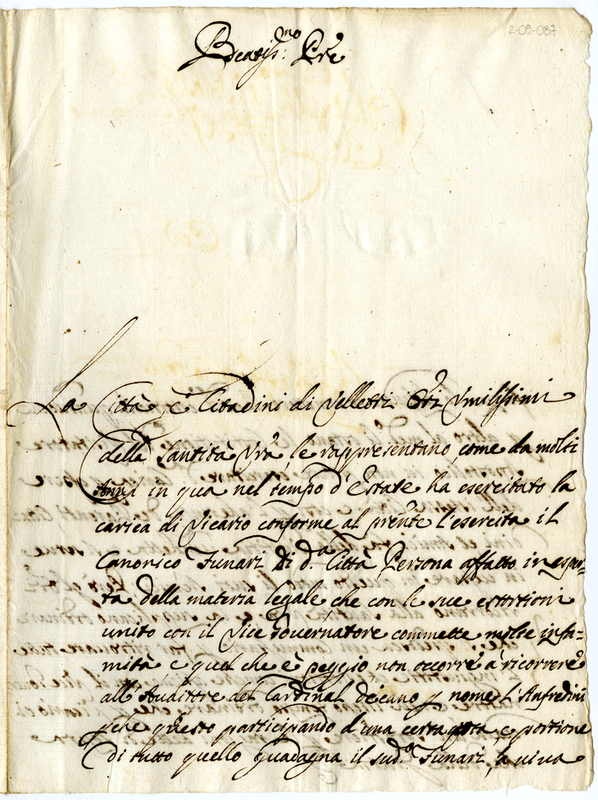 2-09-087
Beatiss.mo Pre
La Città e Cittadini di Velletri Orī Umilissimi
della Santità Vrā, le rappresentano, come da molti
Anni in qua nel tempo d'Estate ha esercitato la
carica di Vicario conforme al prnte l'esercita il
Canonico Funari di d.a Città Persona affatto inesper=
ta della materia legale che con le sue estortioni
unito con il Vice Governatore commette molte infa=
mità e quel che è peggio, non occorre a ricorrere
all'Auditore del Cardinal Decano p nome l'Anfredini
p che questo participando d'una certa e portione
di tutto quello guadagna il sud.o Funari, a viva